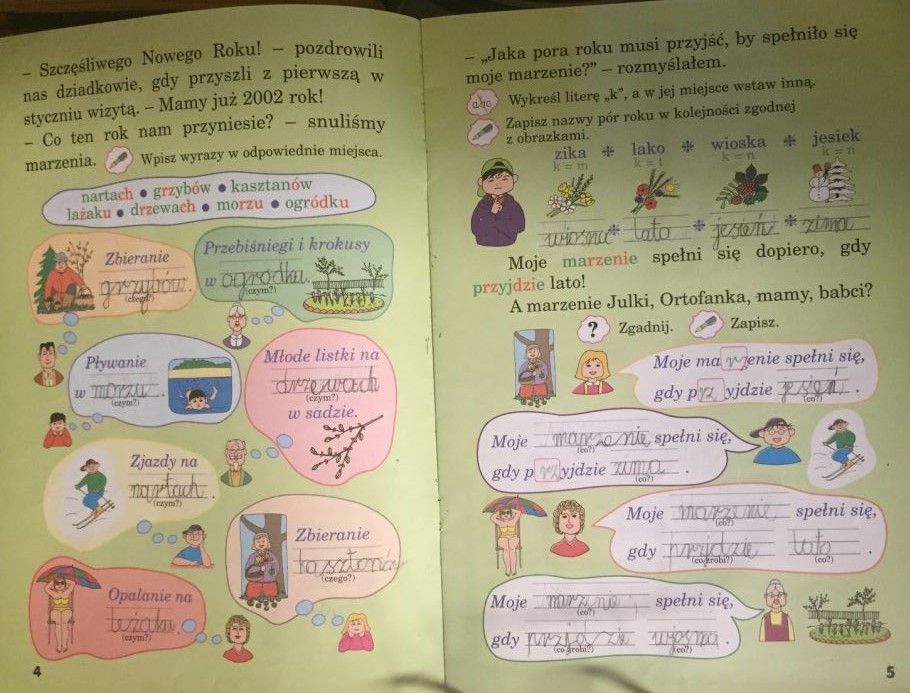 – Szczęśliwego Nowego Roku! – pozdrowili
nas dziadkowie, gdy przyszli z pierwszą w
styczniu wizytą. – Mamy już 2002 rok!
– Co ten rok nam przyniesie? – snuliśmy
marzenia. Wpisz wyrazy w odpowiednie miejsca.
nartach • grzybów • kasztanów
leżaku • drzewach • morzu • ogródku
Zbieranie
grzybów.
(czego?)
Przebiśniegi i krokusy
w ogródku.
(czym?)
Pływanie
w morzu.
(czym?)
Młode listki na
drzewach
(czym?)
w sadzie.
Zjazdy na
nartach.
(czym?)
Zbieranie
kasztanów
(czego?)
Opalanie na
leżaku.
(czym?)
4
– „Jaka pora roku musi przyjść, by spełniło się
moje marzenie?” – rozmyślałem.
abc Wykreśl literę „k”, a w jej miejsce wstaw inną.
Zapisz nazwy pór roku w kolejności zgodnej
z obrazkami.
zika * lako * wioska * jesiek
k = m k = t k = n k = n
wiosna * lato * jesień * zima
Moje marzenie spełni się dopiero, gdy
przyjdzie lato!
A marzenie Julki, Ortofanka, mamy, babci?
? Zgadnij. Zapisz.
Moje marzenie spełni się,
gdy przyjdzie jesień.
(co?)
Moje marzenie spełni się,
(co?)
gdy przyjdzie zima.
(co?)
Moje marzenie spełni się,
(co?)
gdy przjdzie lato.
(co robi?) (co?)
Moje marzenie spełni się,
(co?)
gdy przjdzie wiosna.
(co robi?) (co?)
5